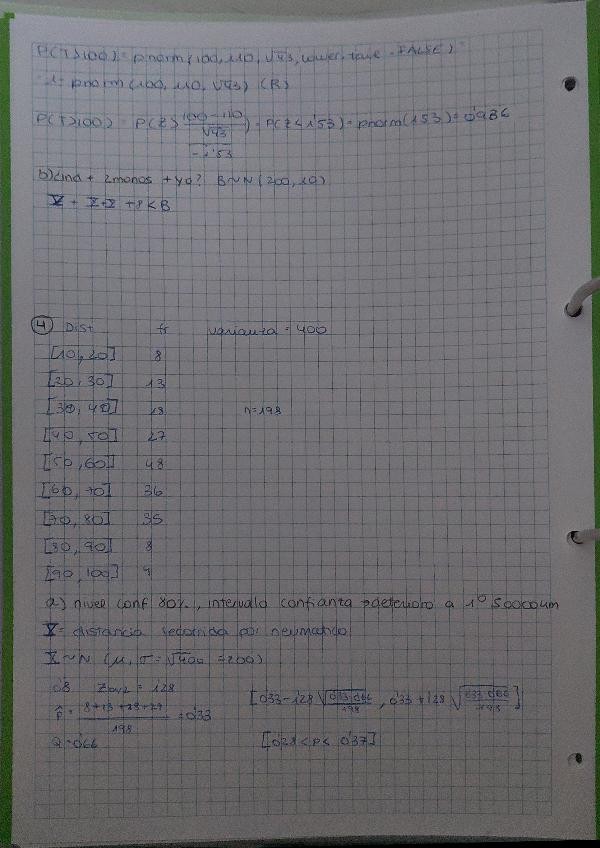 P(T>100) = pnorm(100, 110, √43, lower.tail = FALSE) =
= 1 - pnorm(100, 110, √43) (R)
P(T>100) = P(Z > (100-110)/√43) = P(Z < 1'53) = pnorm(1'53) = 0'936
-1'53
b) + 2monos + yo? B~N(200, 10)
X + X+X + 8 < B
4 Dist fr varianza = 400
[10, 20] 8
[20, 30] 13
[30, 40] 18 n=198
[40, 50] 27
[50, 60] 48
[60, 70] 36
[70, 80] 35
[80, 90] 8
[90, 100]
a) nivel conf 80%, intervalo confianza deterioro a 1º 50000um
X = distancia recorrida por neumatido
X~N(μ, σ=√400 = 200)
0'8 Zα/2 = 1'28 [0'33 - 1'28 √(0'33·0'66/198), 0'33 + 1'28 √(0'33·0'66/198)]
p̂ = /198 = 0'33
Q = 0'66 [0'28 < p < 0'37]